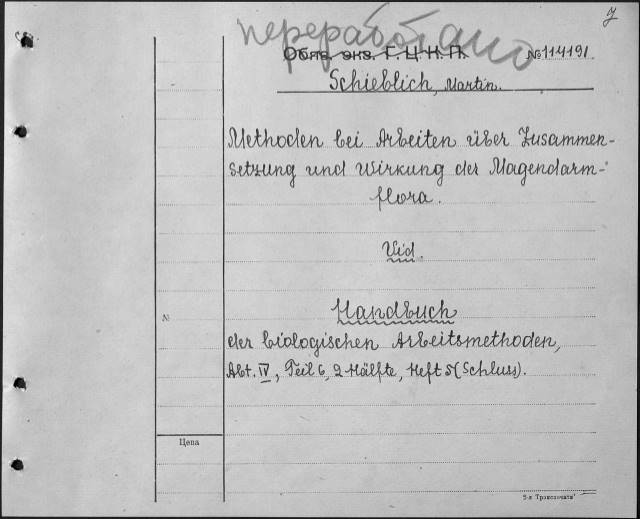 переработано
Обяз. экз. Г. Ц. К. П. №114191
Schieblich, Martin.
Methoden bei Arbeiten über Zusammen-
setzung und Wirkung der Magendarm-
flora.
Vid.
Handbuch
№
der biologischen Arbeitsmethoden,
Abt. IV, Teil 6, 2 Hälfte, Heft 5 (Schluss).
Цена